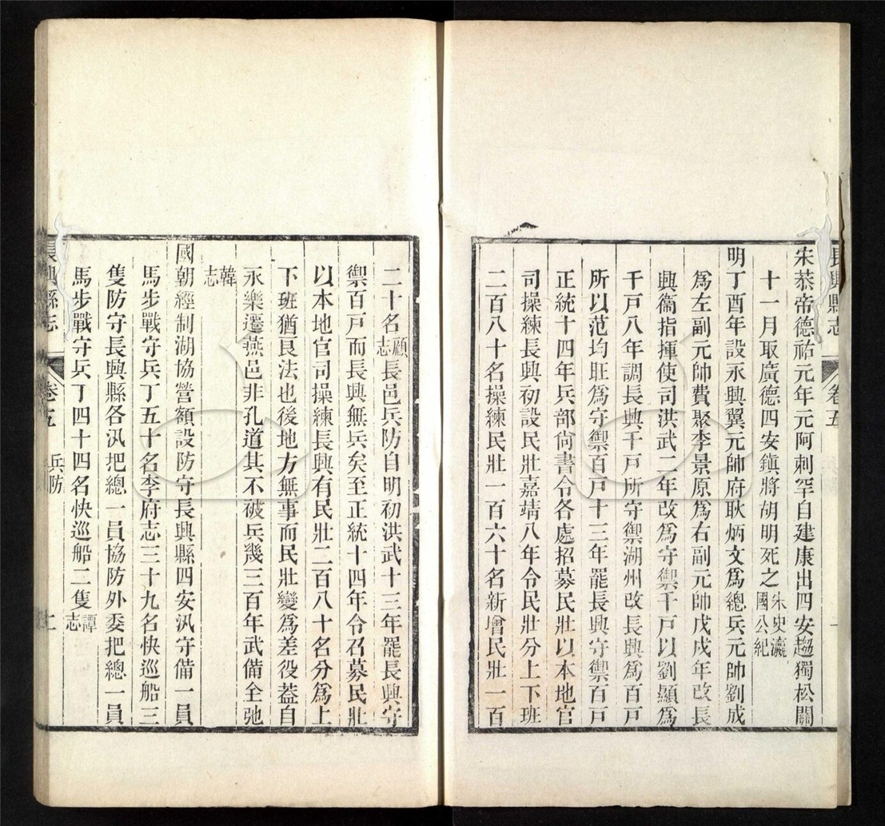 長興縣志 卷五 一
宋恭帝德祐元年元阿剌罕自建康出四安趨獨松關
十一月取廣德四安鎮將胡明死之宋史瀛國公紀
明丁酉年設永興翼元帥府耿炳文爲總兵元帥劉成
爲左副元帥費聚李景原爲右副元帥戊戌年改長
興衞指揮使司洪武二年改爲守禦千戸以劉顯爲
千戸八年調長興千戸所守禦湖州改長興爲百戸
所以范均旺爲守禦百戸十三年罷長興守禦百戸
正統十四年兵部尙書令各處招募民壯以本地官
司操練長興初設民壯嘉靖八年令民壯分上下班
二百八十名操練民壯一百六十名新增民壯一百
二十名顧志長邑兵防自明初洪武十三年罷長興守
禦百戸而長興無兵矣至正統十四年令召募民壯
以本地官司操練長興有民壯二百八十名分爲上
下班猶良法也後地方無事而民壯變爲差役葢自
永樂遷燕邑非孔道其不被兵幾三百年武備全弛
韓志
國朝經制湖協營額設防守長興縣四安汛守備一員
馬步戰守兵丁五十名李府志三十九名快巡船三
隻防守長興縣各汛把總一員協防外委把總一員
馬步戰守兵丁四十四名快巡船二隻譚志
長興縣志 卷五 兵防